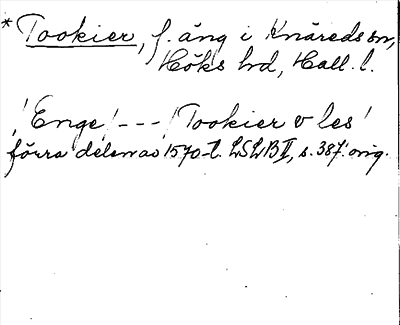 * Tookier, f. äng i Knäreds sn,
Höks hd, Hall. l.
'Enge' --- 'Tookier v les'
förra delen av 1570-t. LSLB II, s. 387. orig.